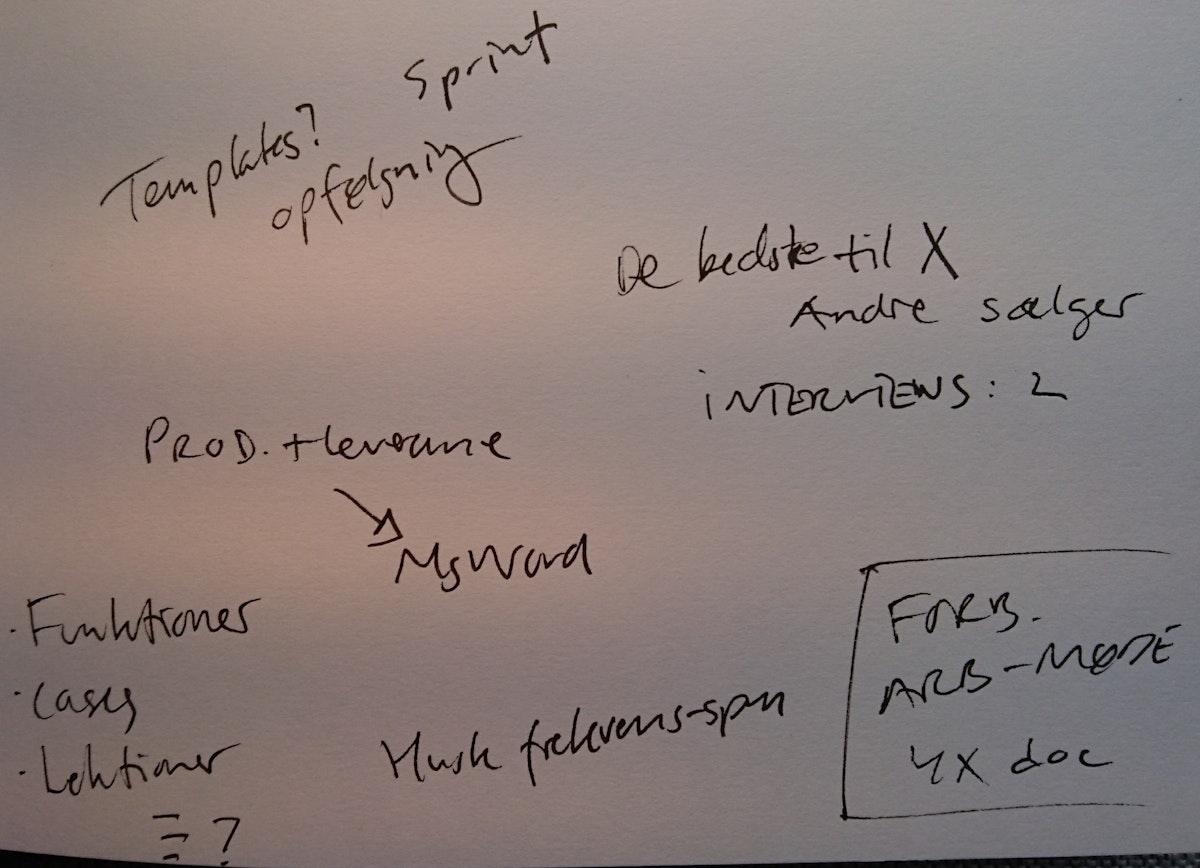 Sprint
Templates?
opfølgning
De bedste til X
Andre sælger
INTERVIEWS: 2
PROD. + leverance
MsWord
· Funktioner
· Cases
· Lektioner
?
Husk frekvens-spm
FORB.
ARB-MØDE
4X doc